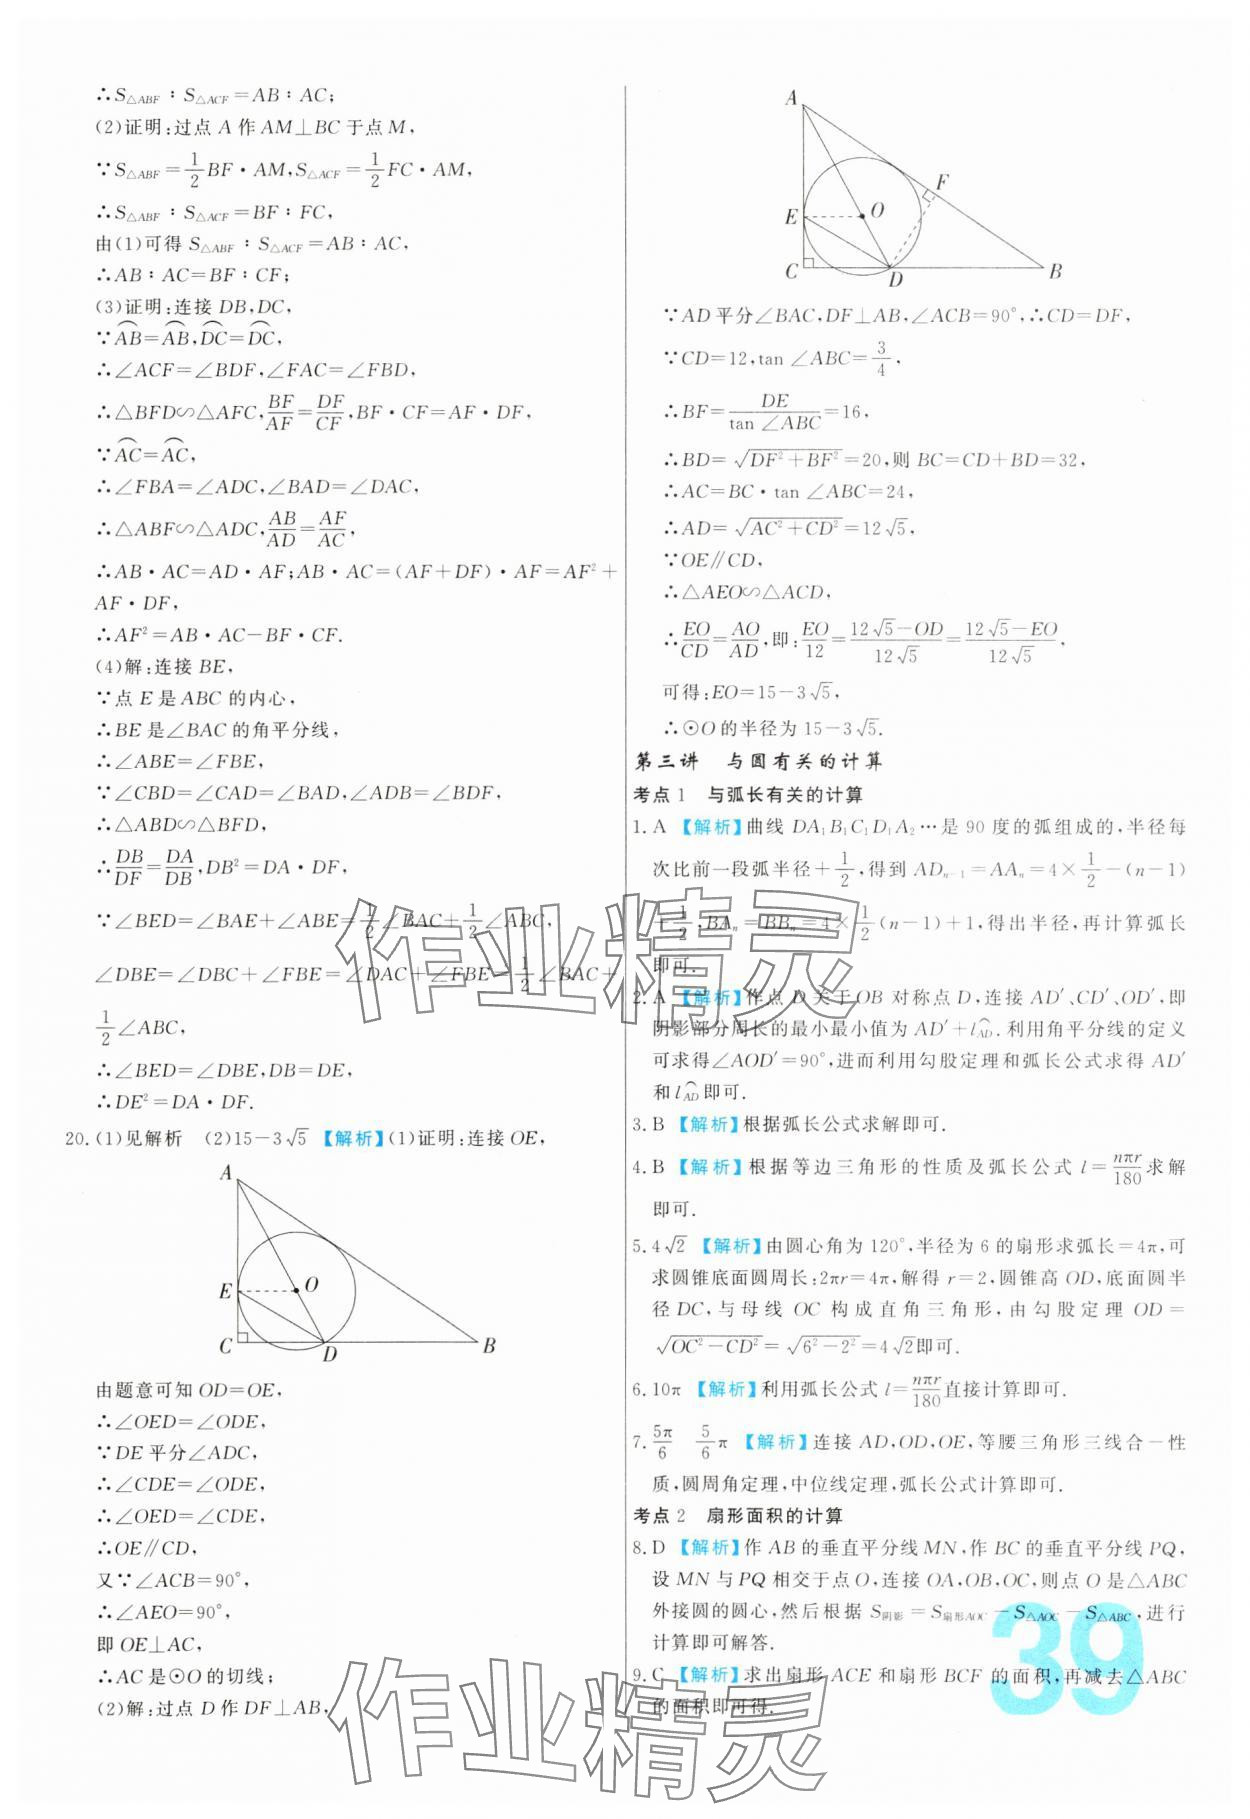 ∴S△ABF∶S△ACF=AB∶AC;
(2)证明:过点 A 作 AM⊥BC 于点 M,
∵S△ABF=1/2 BF·AM,S△ACF=1/2 FC·AM,
∴S△ABF∶S△ACF=BF∶FC,
由(1)可得 S△ABF∶S△ACF=AB∶AC,
∴AB∶AC=BF∶CF;
(3)证明:连接 DB,DC,
∵⌒AB=⌒AB,⌒DC=⌒DC,
∴∠ACF=∠BDF,∠FAC=∠FBD,
∴△BFD∽△AFC,BF/AF=DF/CF,BF·CF=AF·DF,
∵⌒AC=⌒AC,
∴∠FBA=∠ADC,∠BAD=∠DAC,
∴△ABF∽△ADC,AB/AD=AF/AC,
∴AB·AC=AD·AF;AB·AC=(AF+DF)·AF=AF²+
AF·DF,
∴AF²=AB·AC-BF·CF.
(4)解:连接 BE,
∵点 E 是 ABC 的内心,
∴BE 是∠BAC 的角平分线,
∴∠ABE=∠FBE,
∵∠CBD=∠CAD=∠BAD,∠ADB=∠BDF,
∴△ABD∽△BFD,
∴DB/DF=DA/DB,DB²=DA·DF,
∵∠BED=∠BAE+∠ABE=1/2∠BAC+1/2∠ABC,
∠DBE=∠DBC+∠FBE=∠DAC+∠FBE=1/2∠BAC+
1/2∠ABC,
∴∠BED=∠DBE,DB=DE,
∴DE²=DA·DF.
20.(1)见解析 (2)15-3√5 【解析】(1)证明:连接 OE,
A
E
O
C
D
B
由题意可知 OD=OE,
∴∠OED=∠ODE,
∵DE 平分∠ADC,
∴∠CDE=∠ODE,
∴∠OED=∠CDE,
∴OE∥CD,
又∵∠ACB=90°,
∴∠AEO=90°,
即 OE⊥AC,
∴AC 是⊙O 的切线;
(2)解:过点 D 作 DF⊥AB,
A
F
E
O
C
D
B
∵AD 平分∠BAC,DF⊥AB,∠ACB=90°,∴CD=DF,
∵CD=12,tan ∠ABC=3/4,
∴BF=DE/tan ∠ABC=16,
∴BD=√(DF²+BF²)=20,则 BC=CD+BD=32,
∴AC=BC·tan ∠ABC=24,
∴AD=√(AC²+CD²)=12√5,
∵OE∥CD,
∴△AEO∽△ACD,
∴EO/CD=AO/AD,即:EO/12=(12√5-OD)/12√5=(12√5-EO)/12√5,
可得:EO=15-3√5,
∴⊙O 的半径为 15-3√5.
第三讲 与圆有关的计算
考点 1 与弧长有关的计算
1.A 【解析】曲线 DA₁B₁C₁D₁A₂…是 90 度的弧组成的,半径每
次比前一段弧半径+1/2,得到 ADₙ₋₁=AAₙ=4×1/2-(n-1)
+1/2,BAₙ=BBₙ=4×1/2(n-1)+1,得出半径,再计算弧长
即可.
2.A 【解析】作点 D 关于 OB 对称点 D,连接 AD′、CD′、OD′,即
阴影部分周长的最小最小值为 AD′+l⌒AD.利用角平分线的定义
可求得∠AOD′=90°,进而利用勾股定理和弧长公式求得 AD′
和 l⌒AD即可.
3.B 【解析】根据弧长公式求解即可.
4.B 【解析】根据等边三角形的性质及弧长公式 l=nπr/180求解
即可.
5.4√2 【解析】由圆心角为 120°,半径为 6 的扇形求弧长=4π,可
求圆锥底面圆周长:2πr=4π,解得 r=2,圆锥高 OD,底面圆半
径 DC,与母线 OC 构成直角三角形,由勾股定理 OD=
√(OC²-CD²)=√(6²-2²)=4√2即可.
6.10π 【解析】利用弧长公式 l=nπr/180直接计算即可.
7.5π/6 5/6π 【解析】连接 AD,OD,OE,等腰三角形三线合一性
质,圆周角定理,中位线定理,弧长公式计算即可.
考点 2 扇形面积的计算
8.D 【解析】作 AB 的垂直平分线 MN,作 BC 的垂直平分线 PQ,
设 MN 与 PQ 相交于点 O,连接 OA,OB,OC,则点 O 是△ABC
外接圆的圆心,然后根据 S阴影=S扇形AOC-S△AOC-S△ABC,进行
计算即可解答.
9.C 【解析】求出扇形 ACE 和扇形 BCF 的面积,再减去△ABC
的面积即可得.
39
作业精灵
作业精灵